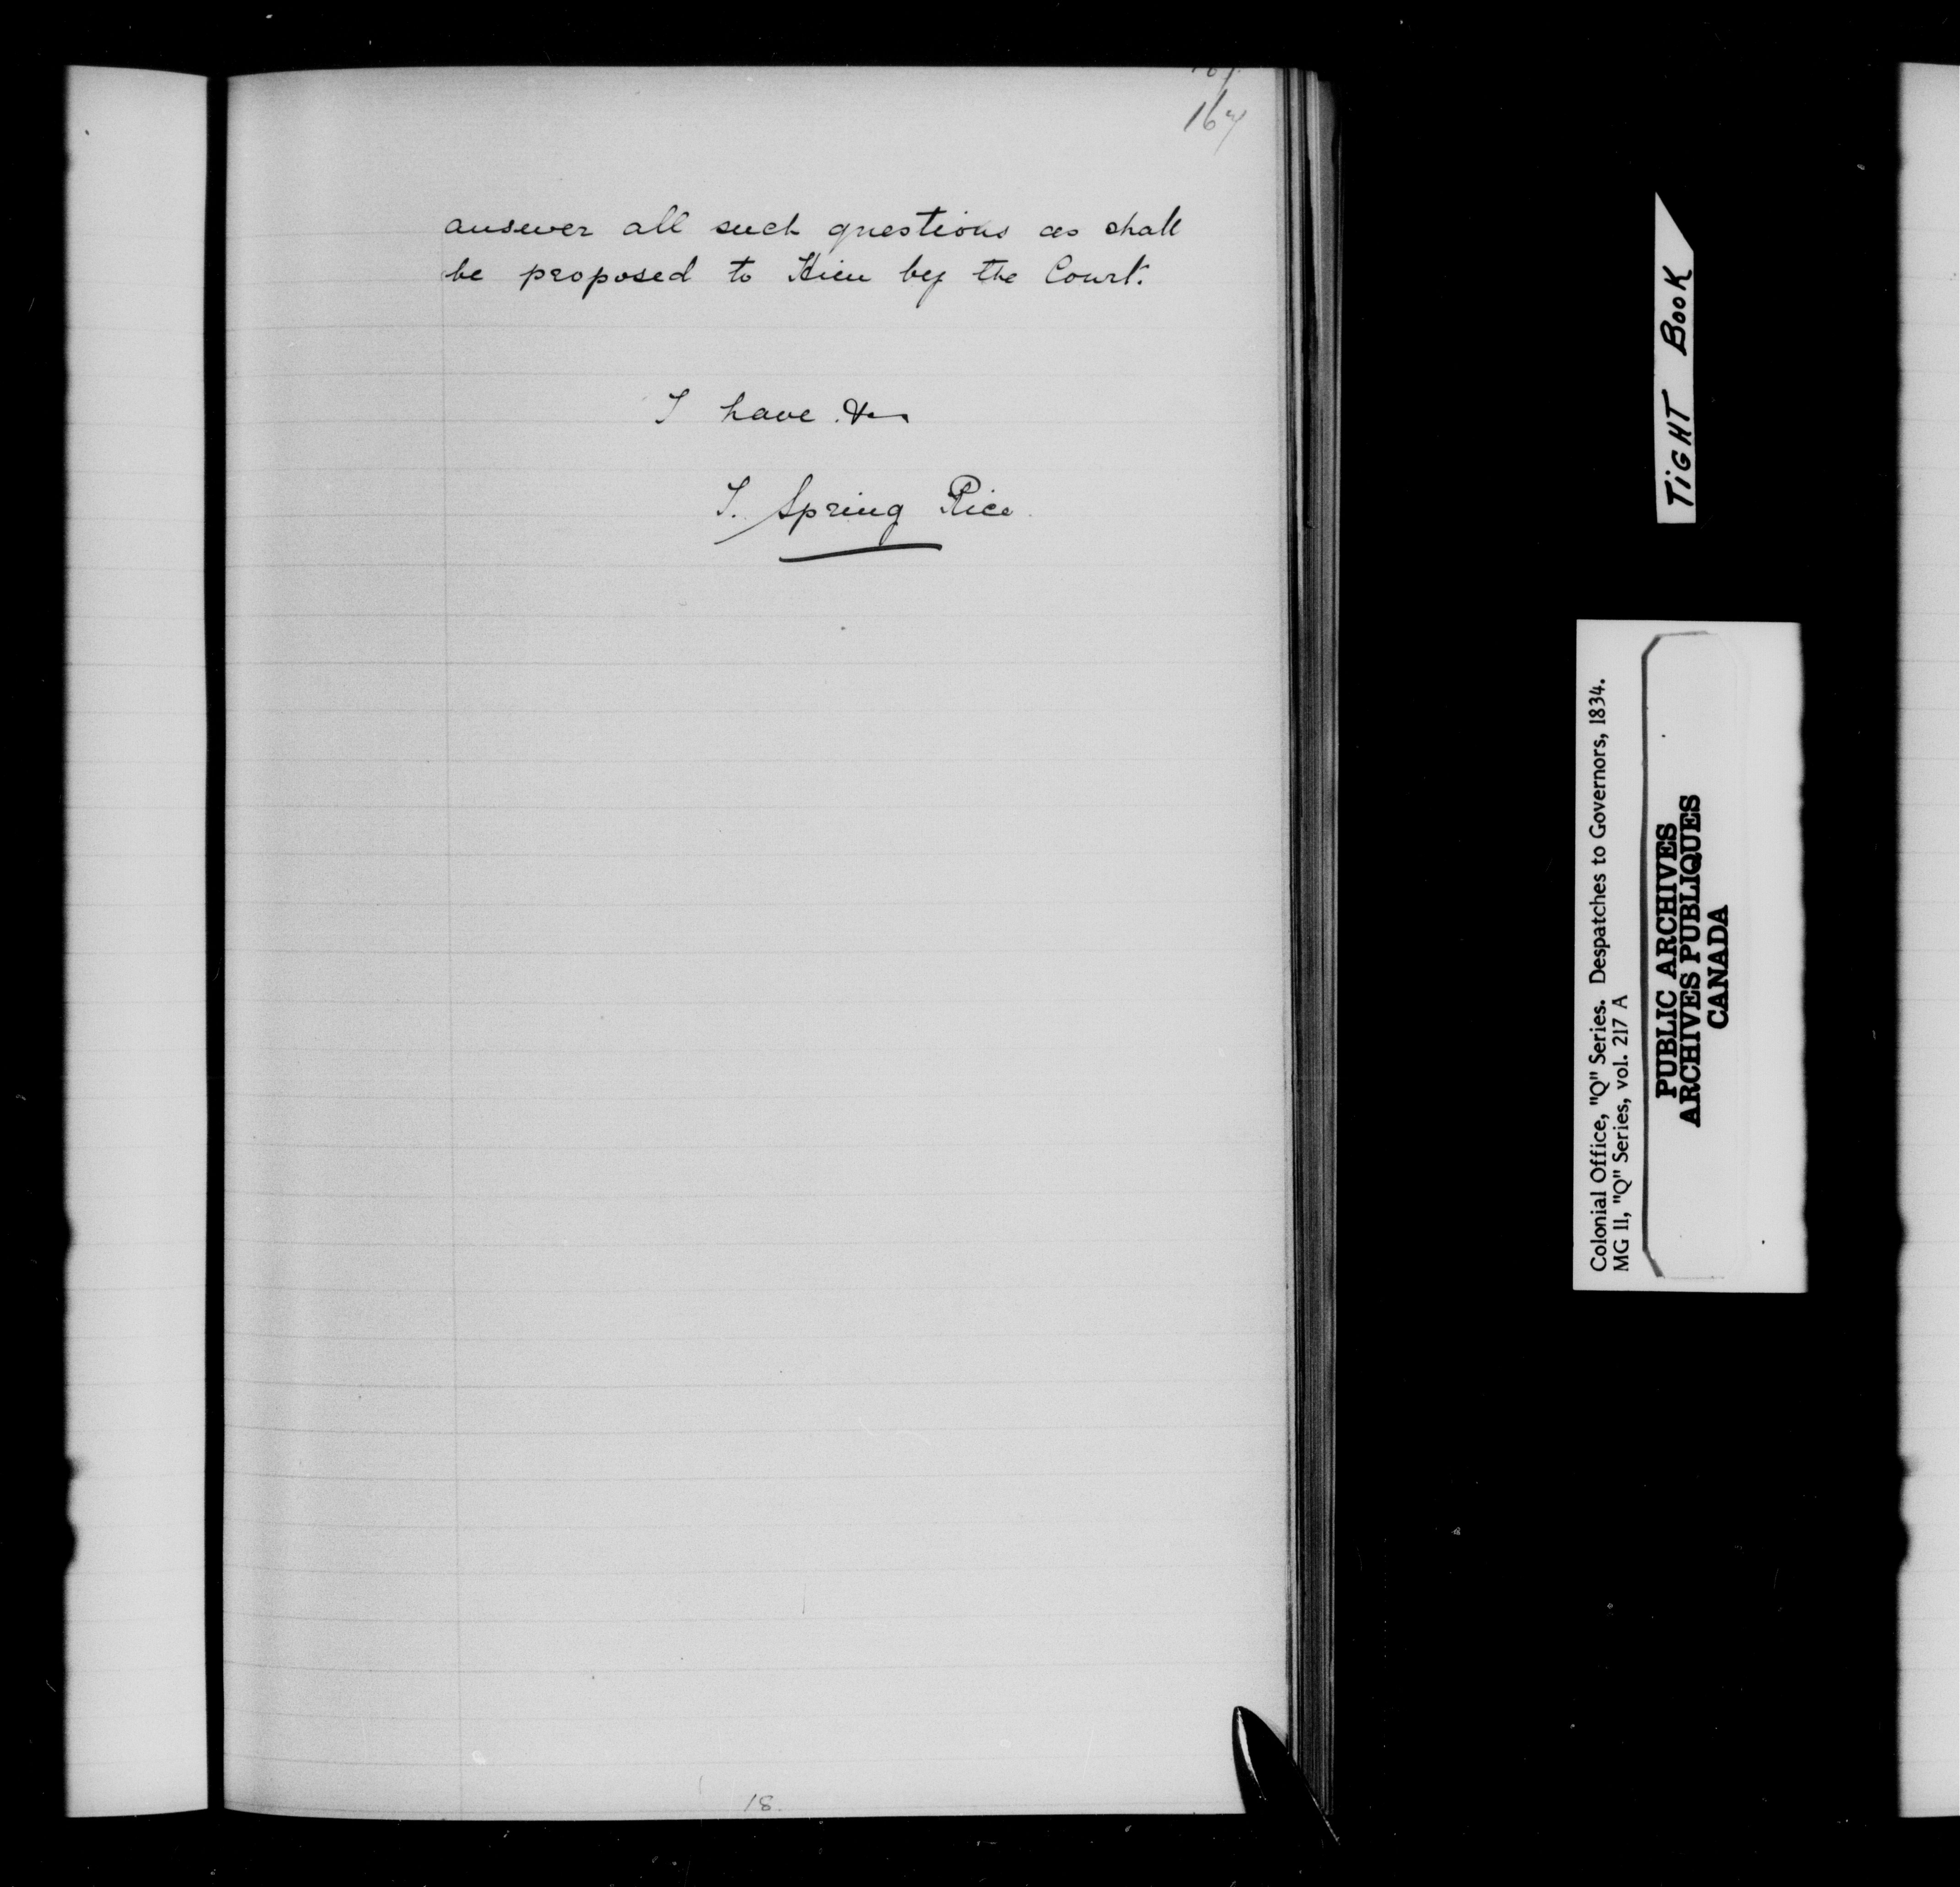 167
answer all such questions as shall
be proposed to Him by the Court.
I have &c
T. Spring Rice
18
TIGHT BOOK
Colonial Office, "Q" Series. Despatches to Governors, 1834.
MG 11, "Q" Series, vol. 217 A
PUBLIC ARCHIVES
ARCHIVES PUBLIQUES
CANADA